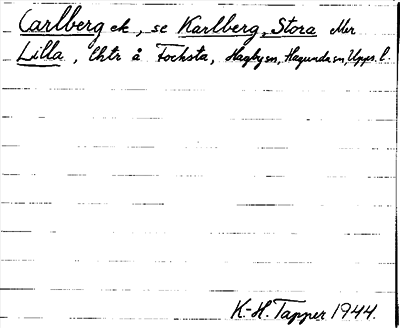 Carlberg ek, se Karlberg, Stora eller
Lilla, lhtr å Focksta, Hagby sn, Hagunda sn, Upps. l.
K.-H. Tapper 1944.